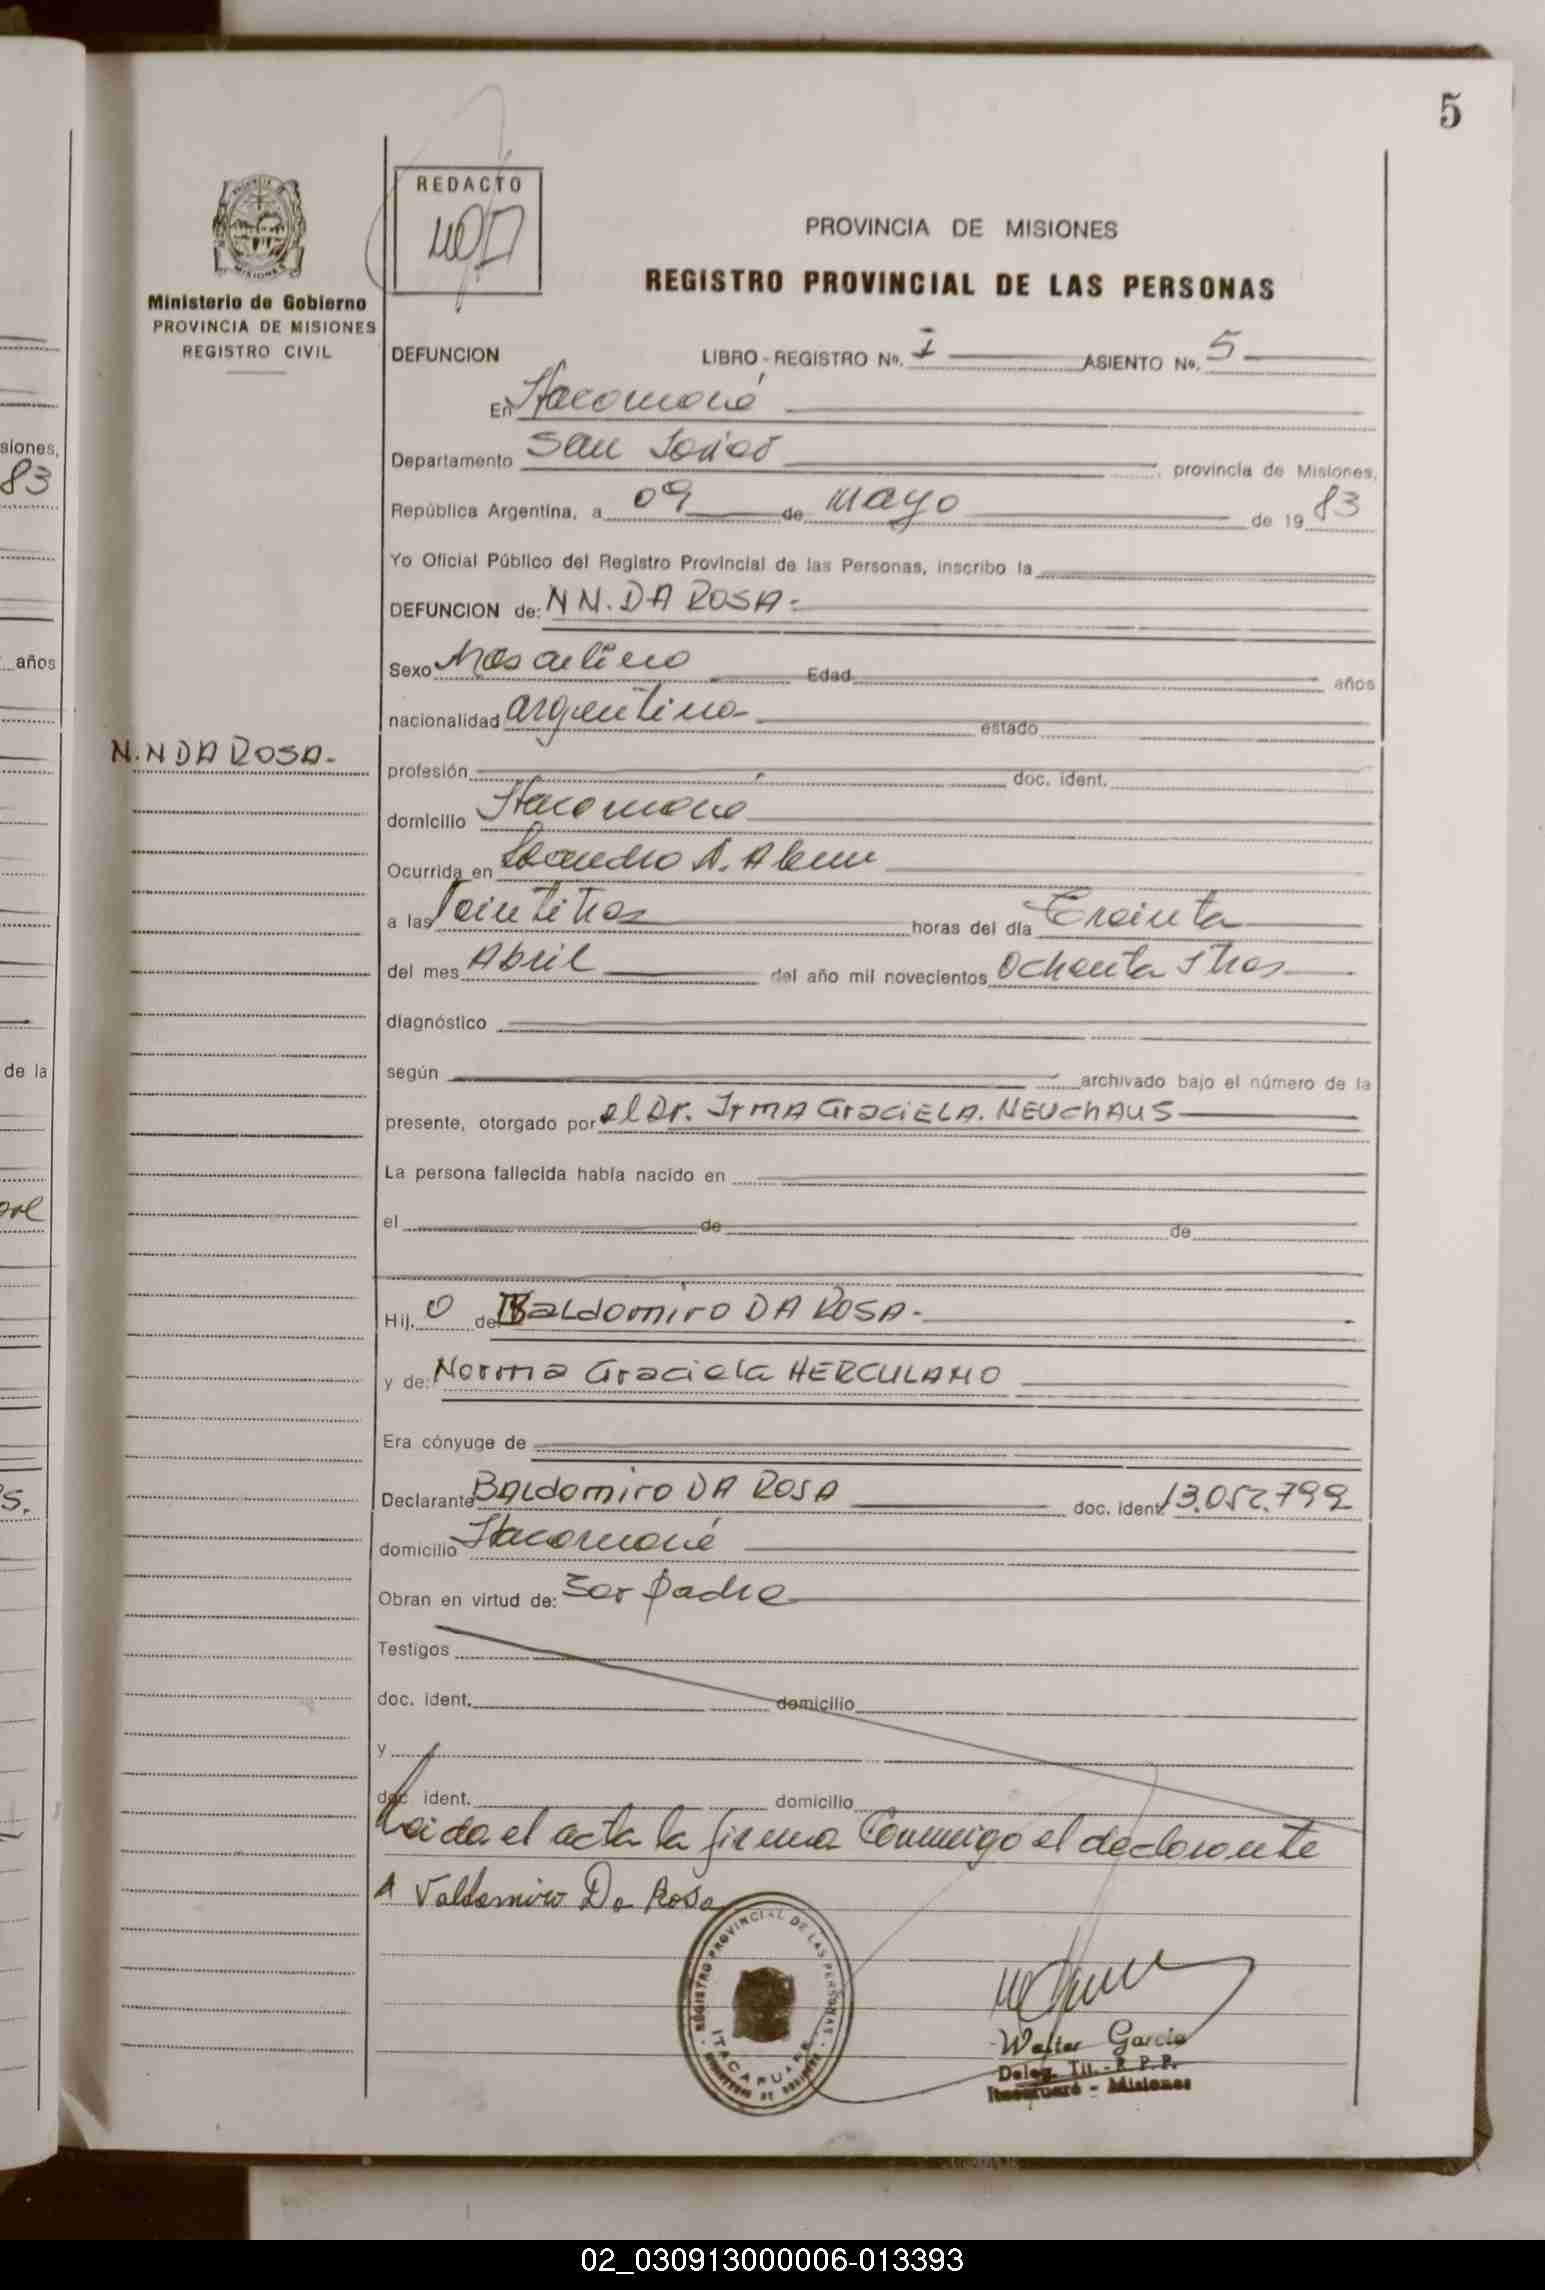 5
REDACTO
PROVINCIA DE MISIONES
REGISTRO PROVINCIAL DE LAS PERSONAS
Ministerio de Gobierno
PROVINCIA DE MISIONES
REGISTRO CIVIL
DEFUNCION LIBRO - REGISTRO No. I ASIENTO No. 5
En Itacaruaré
Departamento San Javier provincia de Misiones,
República Argentina, a 09 de Mayo de 19 83
Yo Oficial Público del Registro Provincial de las Personas, inscribo la
DEFUNCION de: NN. DA ROSA -
Sexo Masculino Edad años
nacionalidad argentino estado
N.N DA ROSA -
profesión doc. ident.
domicilio Itacaruaré
Ocurrida en Leandro N. Alem
a las veintitres horas del día Treinta
del mes Abril del año mil novecientos Ochenta y tres
diagnóstico
según archivado bajo el número de la
presente, otorgado por el Dr. IrmA GraciELA. NEUChAUS
La persona fallecida había nacido en
el de de
Hij. o de BaLdomiro DA ROSA -
y de: Norma Graciela HERCULANO
Era cónyuge de
Declarante BALdomiro DA ROSA doc. ident. 13.052.799
domicilio Itacaruaré
Obran en virtud de: ser padre
Testigos
doc. ident. domicilio
y
doc. ident. domicilio
Leida el acta la firma Conmigo el declarante
A Valdomiro Da Rosa
REGISTRO PROVINCIAL DE LAS PERSONAS
ITACARUARE
Walter Garcia
Deleg. Tit. - R. P. P.
Itacaruaré - Misiones
siones,
83
años
de la
S.
02_030913000006-013393